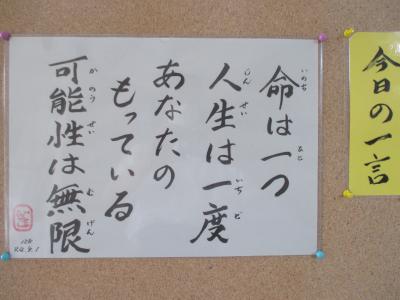 今日の一言
命は一つ
人生は一度
あなたの
もっている
可能性は無限
いのち
ひと
じん せい
いち ど
か のう せい
む げん